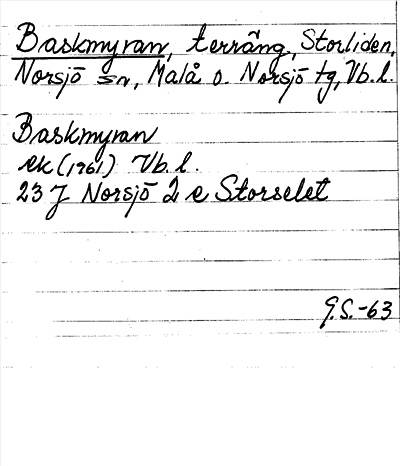 Baskmyran, terräng, Storliden,
Norsjö sn, Malå o. Norsjö tg, Vb.l.
Baskmyran
ek (1961) Vb.l.
23 J Norsjö 2 e Storselet
G.S.-63